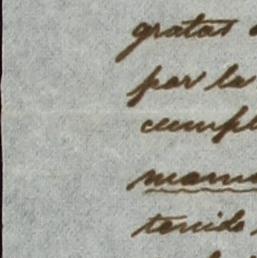 gratas
por la
cumpl
mam
tenido